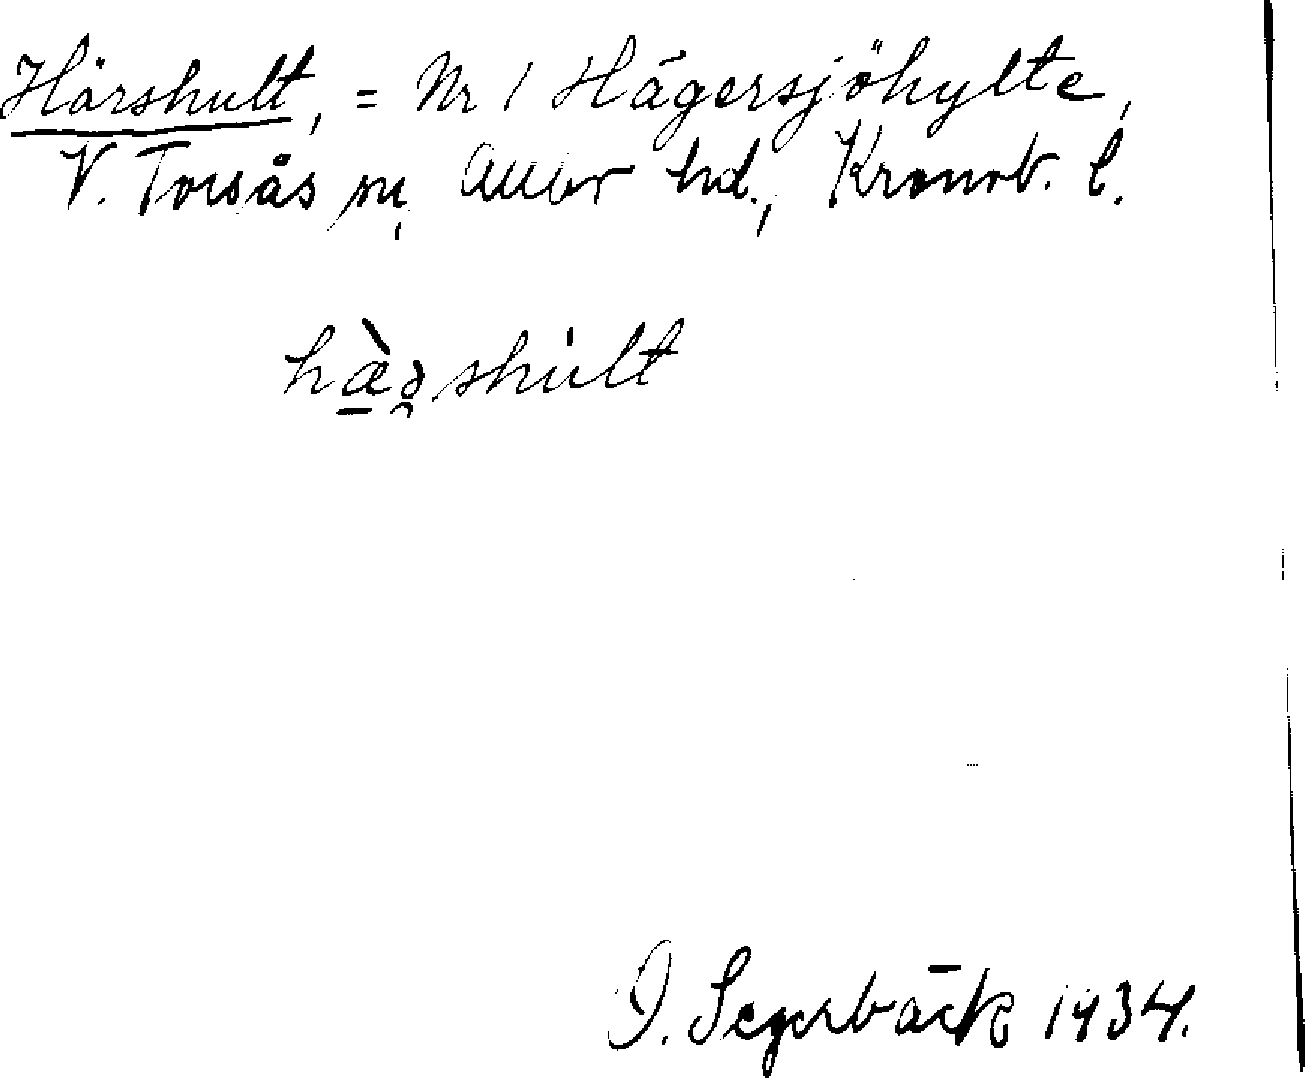 Härshult, = Nr 1 Hägersjöhylte,
V. Torsås sn, Allbo hd., Kronob. l.
hæ̀ə̯shúlt
D. Segerbäck 1934.